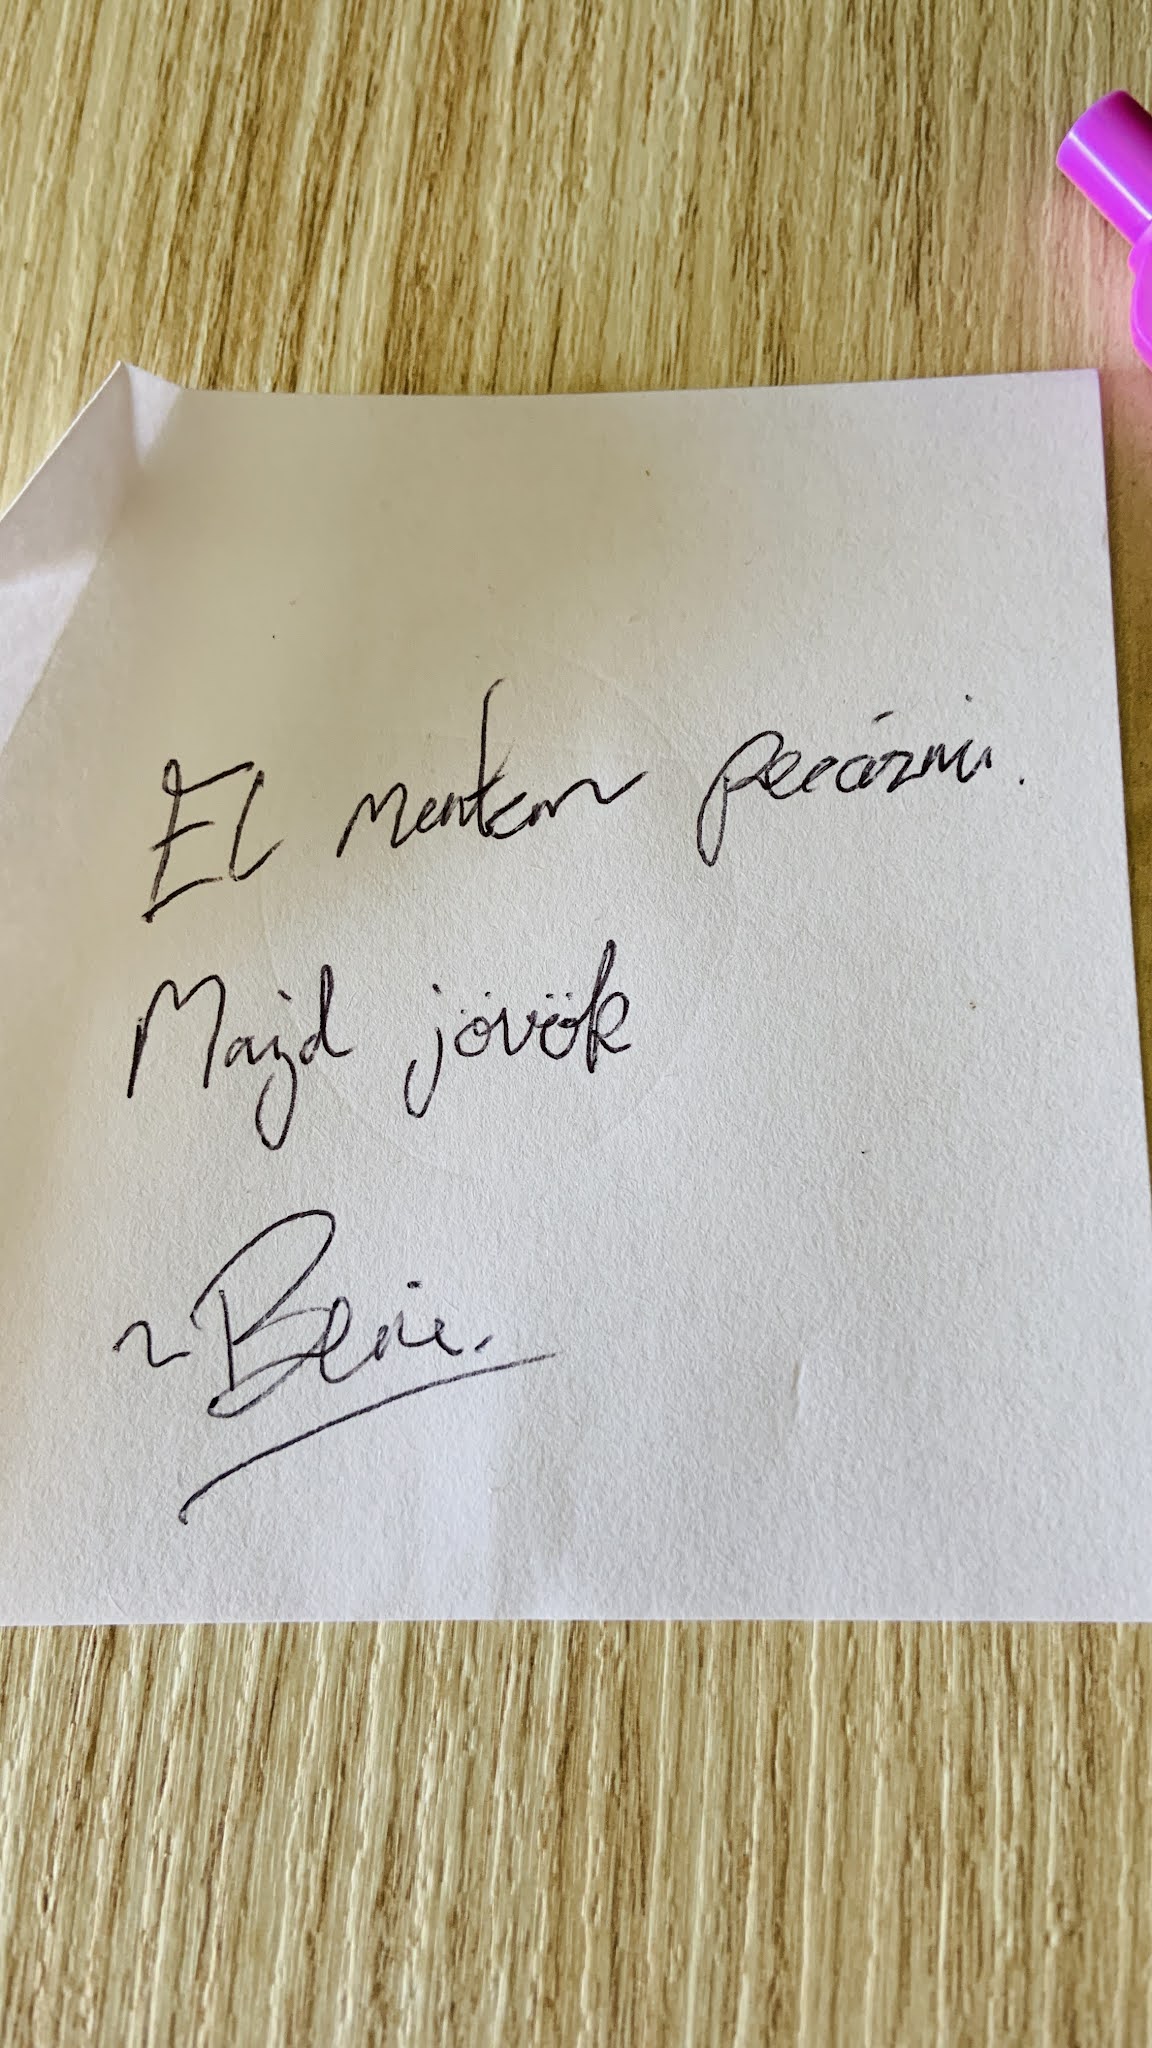 El mentem pecázni.
Majd jövök
~ Beni.